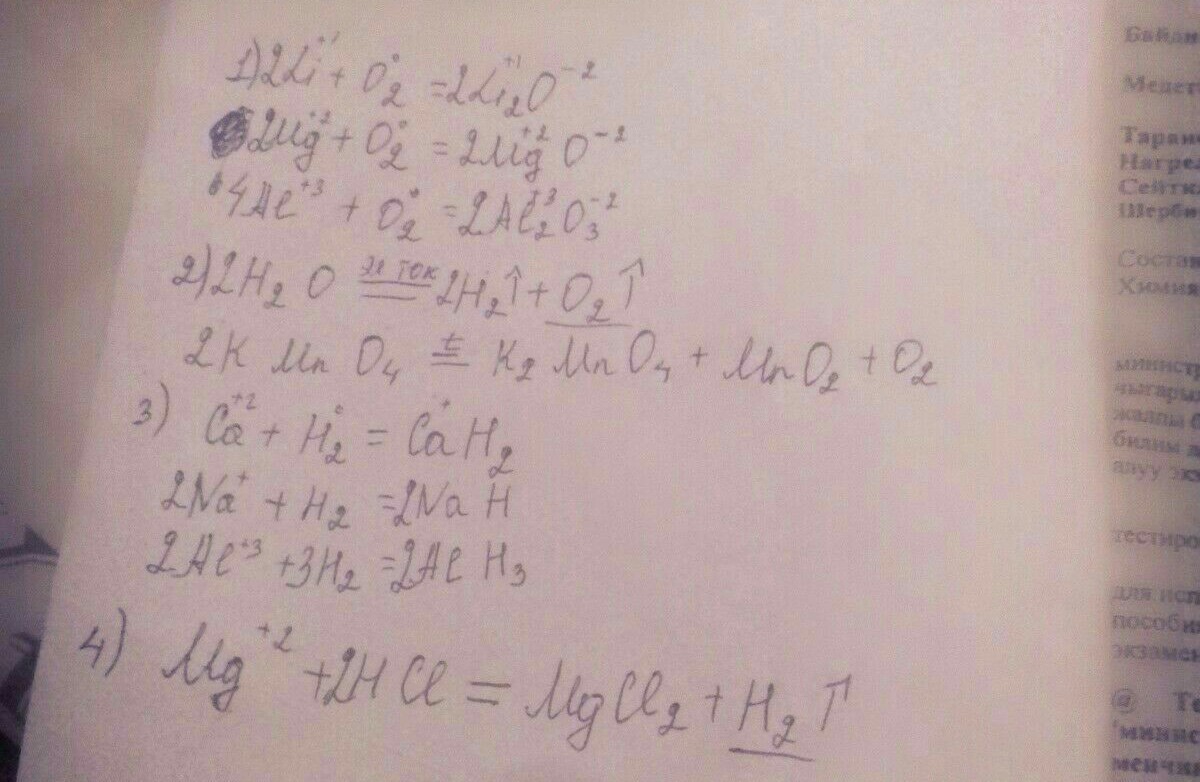 1) 2Li⁺¹ + O₂⁰ = 2Li₂⁺¹O⁻²
2Mg⁺² + O₂⁰ = 2Mg⁺²O⁻²
4Al⁺³ + O₂⁰ = 2Al₂⁺³O₃⁻²
2) 2H₂O =эл ток= 2H₂↑ + O₂↑
2KMnO₄ =t= K₂MnO₄ + MnO₂ + O₂
3) Ca⁺² + H₂⁰ = Ca⁺H₂
2Na⁺ + H₂ = 2NaH
2Al⁺³ + 3H₂ = 2AlH₃
4) Mg⁺² + 2HCl = MgCl₂ + H₂↑
Тарви
Нагре
Сейти
Щерби
Состав
Химия
министр
чыгары
жалпы б
билим
тестиро
для исп
пособи
экзамен
@ Те